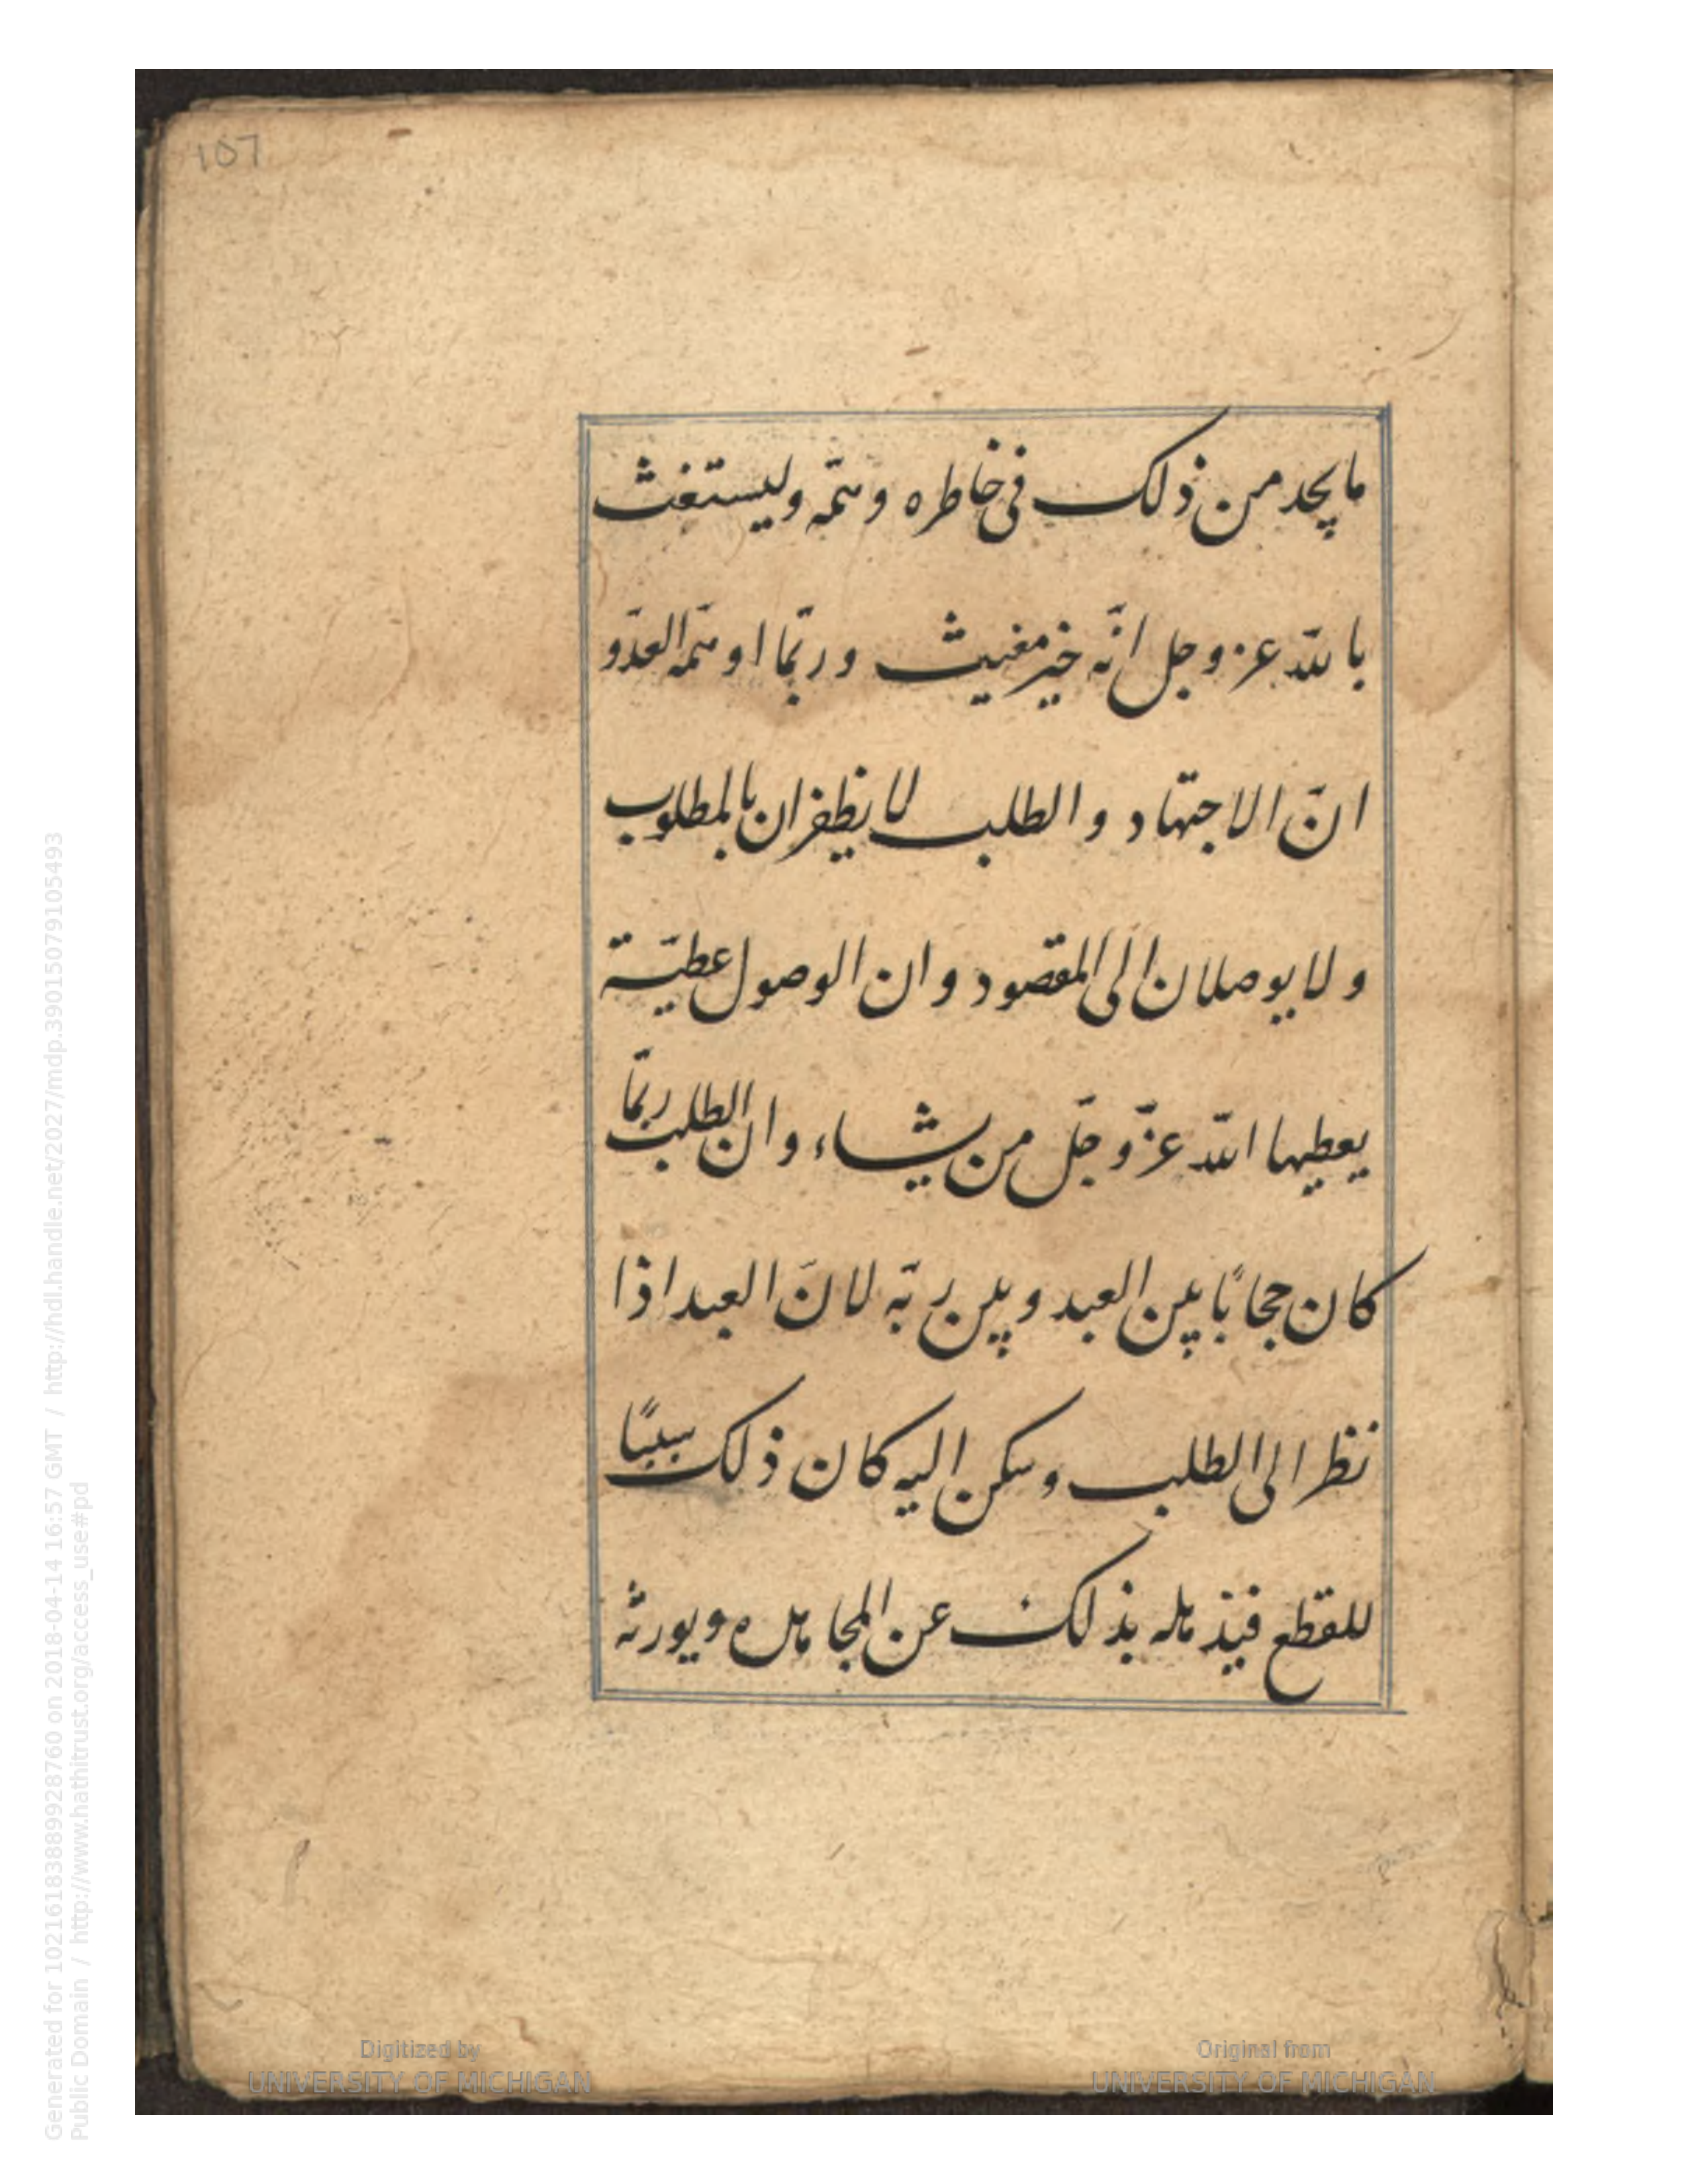 107
ما يجد من ذلك في خاطره وهمّه وليستغث
بالله عز وجل انّه خير مغيث وربّما اوهمه العدوّ
انّ الاجتهاد والطلب لا يظفران بالمطلوب
ولا يوصلان الى المقصود وان الوصول عطيّة
يعطيها الله عزّ وجلّ من يشاء وان الطلب ربّما
كان حجابًا بين العبد وبين ربّه لانّ العبد اذا
نظر الى الطلب وسكن اليه كان ذلك سببًا
للقطع فيذهله بذلك عن المجاهده ويورثه
Generated for 102161838899288760 on 2018-04-14 16:57 GMT / http://hdl.handle.net/2027/mdp.39015079105493
Public Domain / http://www.hathitrust.org/access_use#pd
Digitized by
UNIVERSITY OF MICHIGAN
Original from
UNIVERSITY OF MICHIGAN